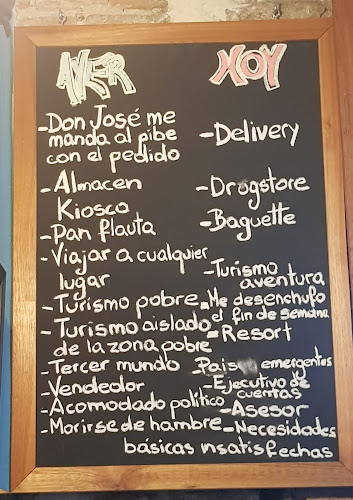 AYER
HOY
-Don José me
manda al pibe
con el pedido
-Delivery
-Almacen
Kiosco
-Drogstore
-Pan flauta
-Baguette
-Viajar a cualquier
lugar
-Turismo
aventura
-Turismo pobre
-Me desenchufo
el fin de semana
-Turismo aislado
de la zona pobre
-Resort
-Tercer mundo
-Pais emergentes
-Vendedor
-Ejecutivo de
cuentas
-Acomodado político
-Asesor
-Morirse de hambre
-Necesidades
básicas insatisfechas